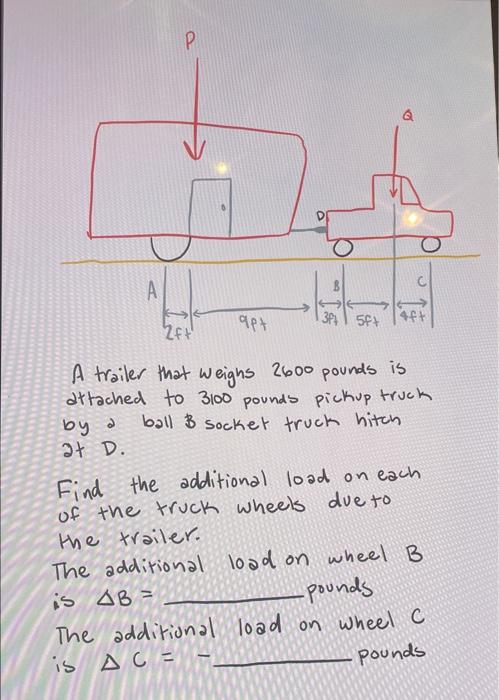 P
Q
D
A
B
C
2ft
9ft
3ft
5ft
4ft
A trailer that weighs 2600 pounds is
attached to 3100 pounds pickup truck
by a ball & socket truck hitch
at D.
Find the additional load on each
of the truck wheels due to
the trailer.
The additional load on wheel B
is ΔB = ________ pounds
The additional load on wheel C
is ΔC = -________ pounds